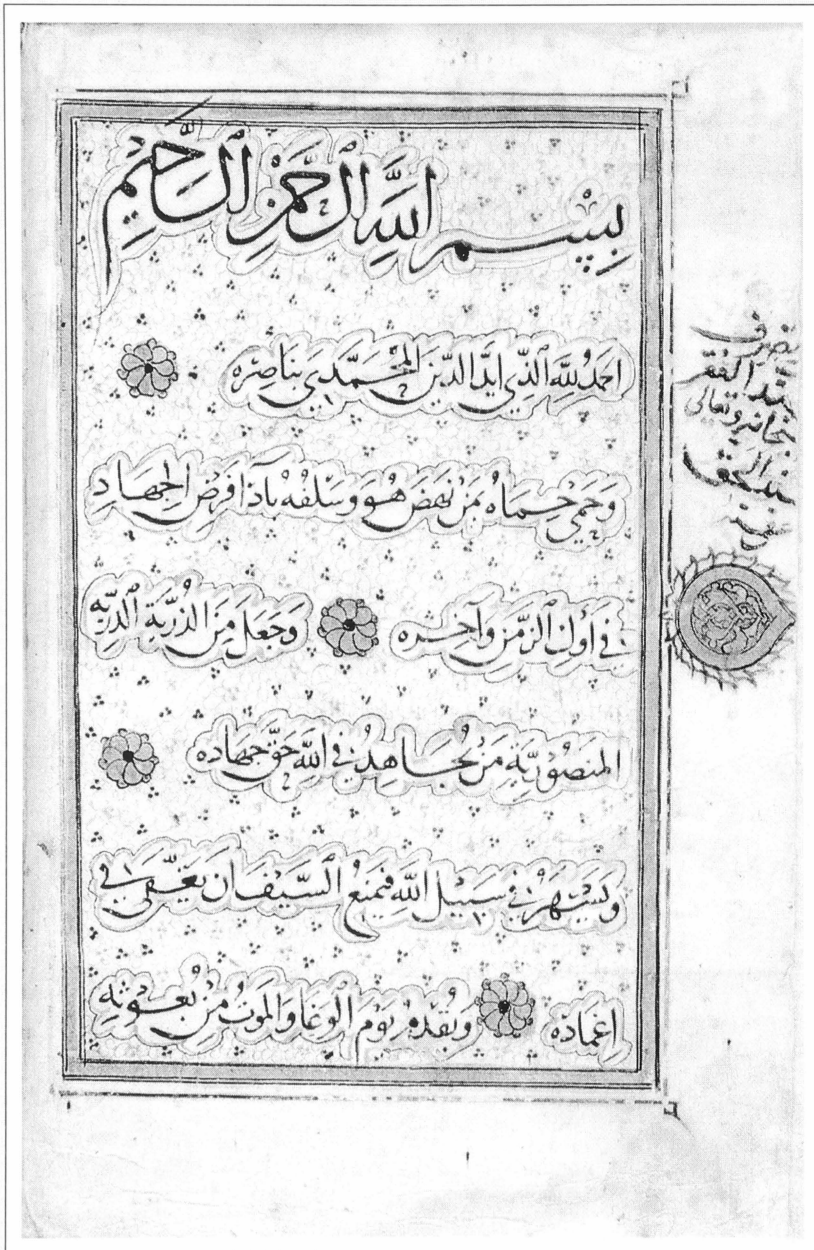 بِسْمِ اللَّهِ الرَّحْمَنِ الرَّحِيمِ
احمَدُ للهِ الَّذِي ايدَ الدِّينَ المُحَمَّدِي بِنَاصِرِه
وَحَمَى حِمَاهُ بمَنْ نهَضَ هُوَ وَسَلفُهُ بادَآ فَرضِ الجِهادِ
في أوَلِ الزَّمَنِ وَآخِرِه وَجَعَلَ مِنَ الذُرِّيَةِ الدرِّيه
المَنصُورِيَّةِ مَن يُجَاهِدُ في اللهِ حَقَّ جِهَادِه
وَيَسْهَرُ في سَبِيْلِ اللَّهِ فيَمنَعُ السَّيْفَ ان يَغْفَى في
اِغمَادِه وَيُقْدِمُ يَوْمَ الوَغَا وَالمَوْتُ مِنْ بُعُوثِهِ
الفقر
وتعالى